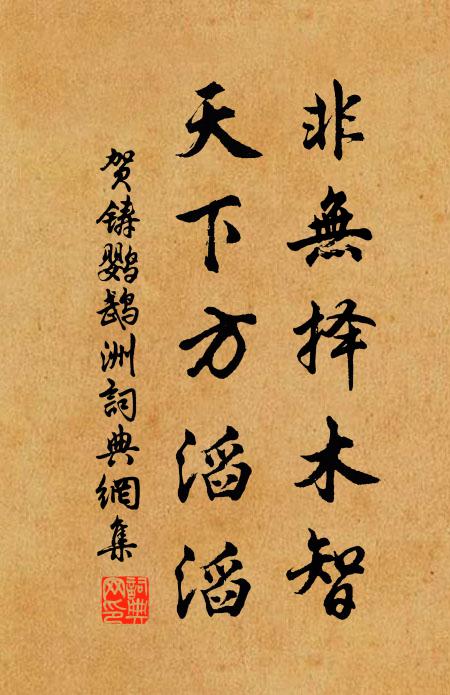 非無择木智
天下方滔滔
贺鋳鹦鹉洲詞典網集
詞典
网印